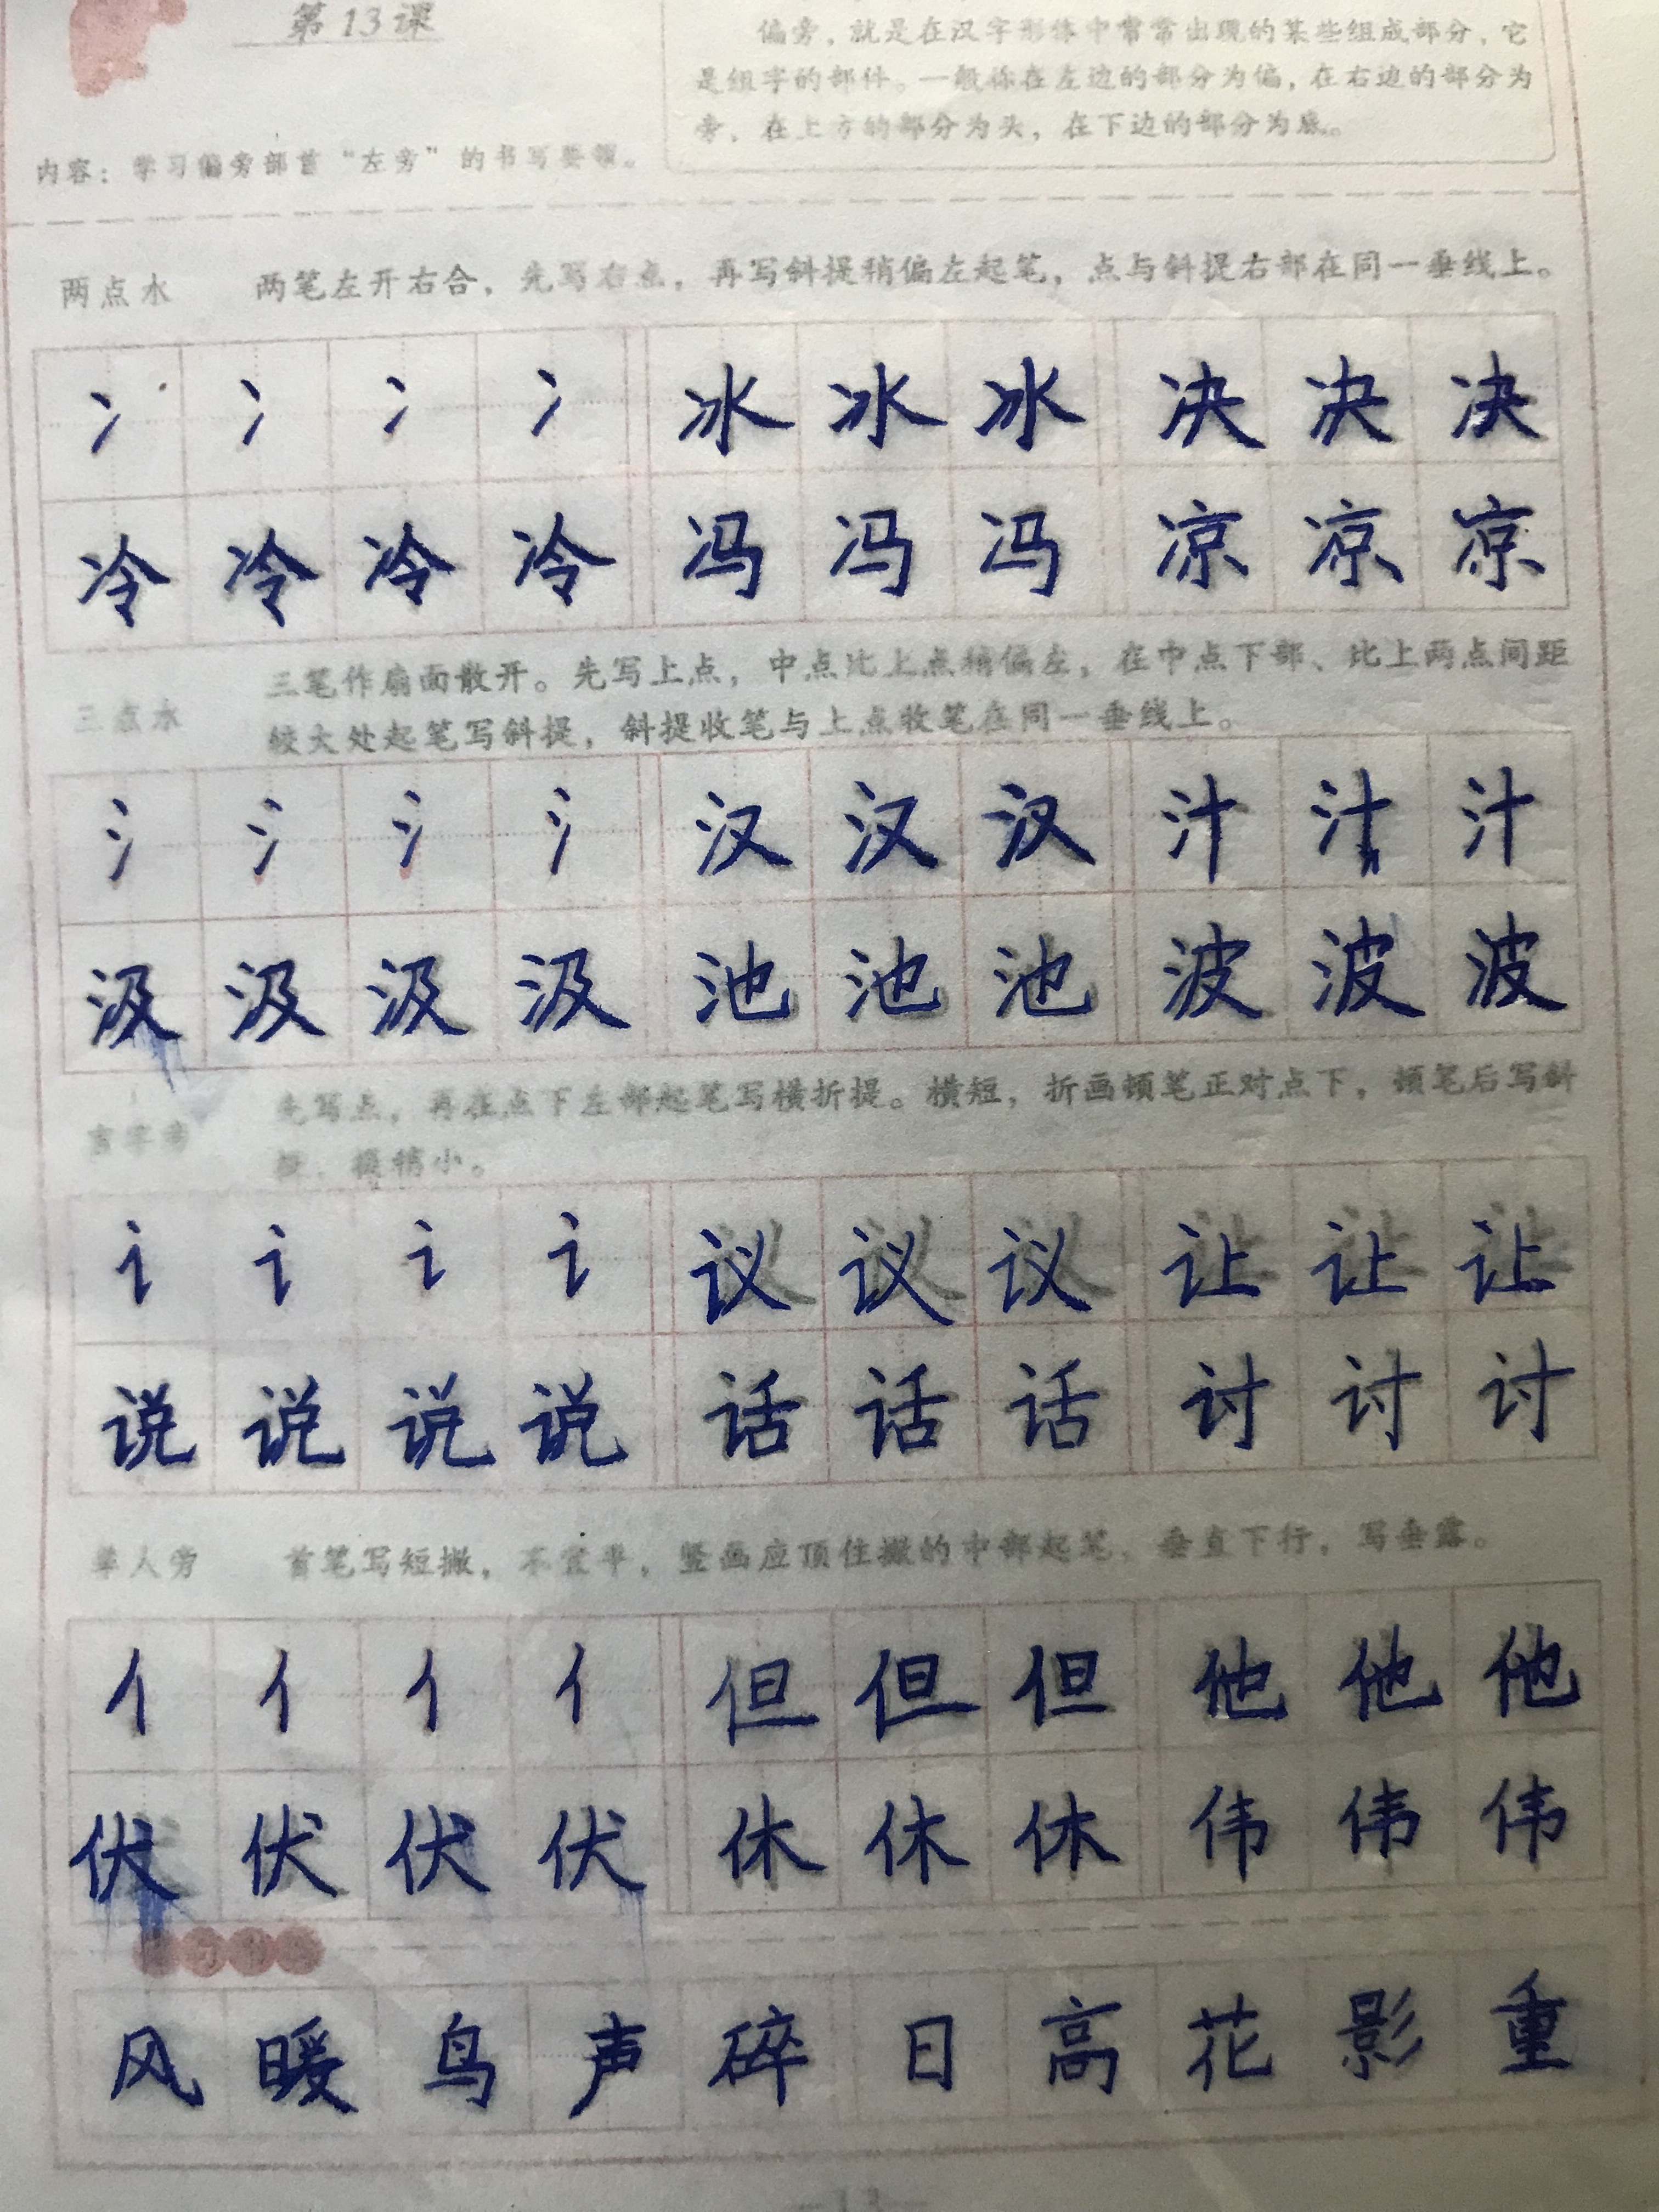 第13课
偏旁，就是在汉字形体中常常出现的某些组成部分，它
是组字的部件。一般称在左边的部分为偏，在右边的部分为
旁，在上方的部分为头，在下边的部分为底。
内容：学习偏旁部首“左旁”的书写要领。
两点水 两笔左开右合，先写右点，再写斜提稍偏左起笔，点与斜提右部在同一垂线上。
冫 冫 冫 冫 冰 冰 冰 决 决 决
冷 冷 冷 冷 冯 冯 冯 凉 凉 凉
三点水 三笔作扇面散开。先写上点，中点比上点稍偏左，在中点下部、比上两点间距
较大处起笔写斜提，斜提收笔与上点收笔在同一垂线上。
氵 氵 氵 氵 汉 汉 汉 汁 汁 汁
汲 汲 汲 汲 池 池 池 波 波 波
言字旁 先写点，再在点下左部起笔写横折提。横短，折画顿笔正对点下，顿笔后写斜
提，提稍小。
讠 讠 讠 讠 议 议 议 让 让 让
说 说 说 说 话 话 话 讨 讨 讨
单人旁 首笔写短撇，不宜平，竖画应顶住撇的中部起笔，垂直下行，写垂露。
亻 亻 亻 亻 但 但 但 他 他 他
伏 伏 伏 伏 休 休 休 伟 伟 伟
风 暖 鸟 声 碎 日 高 花 影 重
13